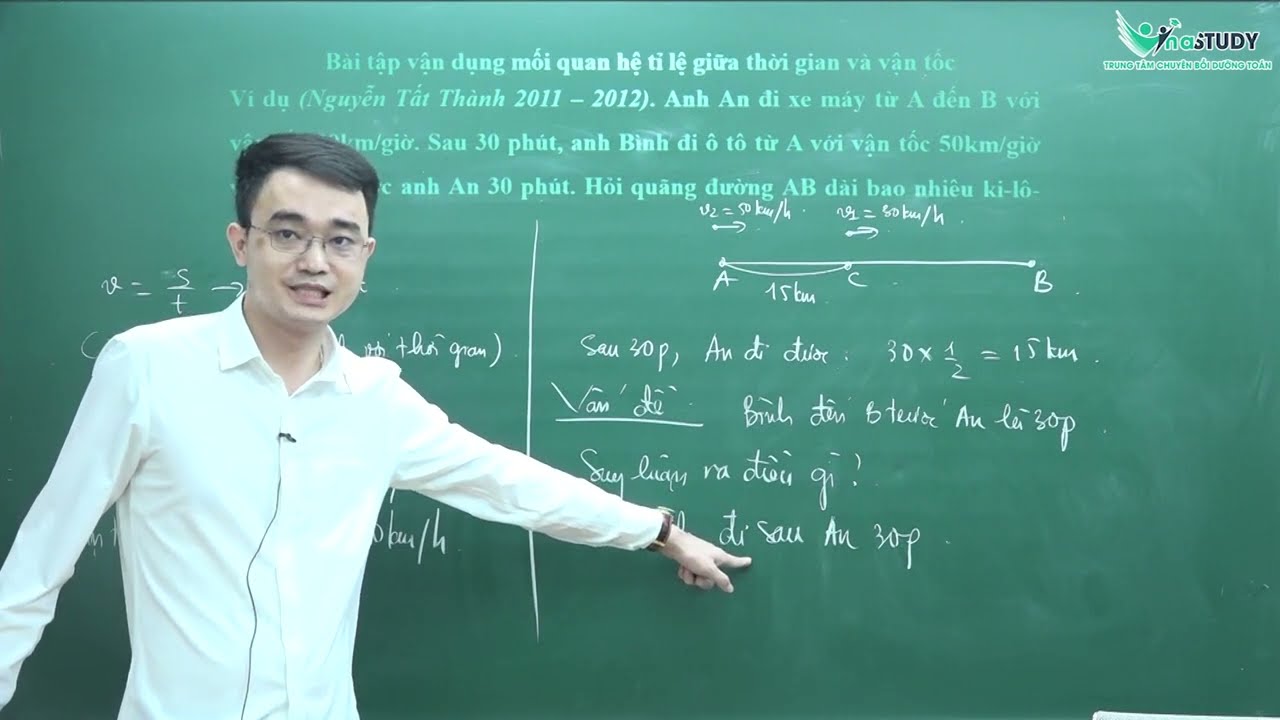 VinaSTUDY
TRUNG TÂM CHUYÊN BỒI DƯỠNG TOÁN
Bài tập vận dụng mối quan hệ tỉ lệ giữa thời gian và vận tốc
Ví dụ (Nguyễn Tất Thành 2011 – 2012). Anh An đi xe máy từ A đến B với
km/giờ. Sau 30 phút, anh Bình đi ô tô từ A với vận tốc 50km/giờ
anh An 30 phút. Hỏi quãng đường AB dài bao nhiêu ki-lô-
v2 = 50km/h. v1 = 30km/h.
A C B
15km
v = s/t →
với thời gian)
km/h
Sau 30p, An đi được: 30 × 1/2 = 15km.
Vấn đề. Bình đến B trước An là 30p.
Suy luận ra điều gì?
đi sau An 30p.